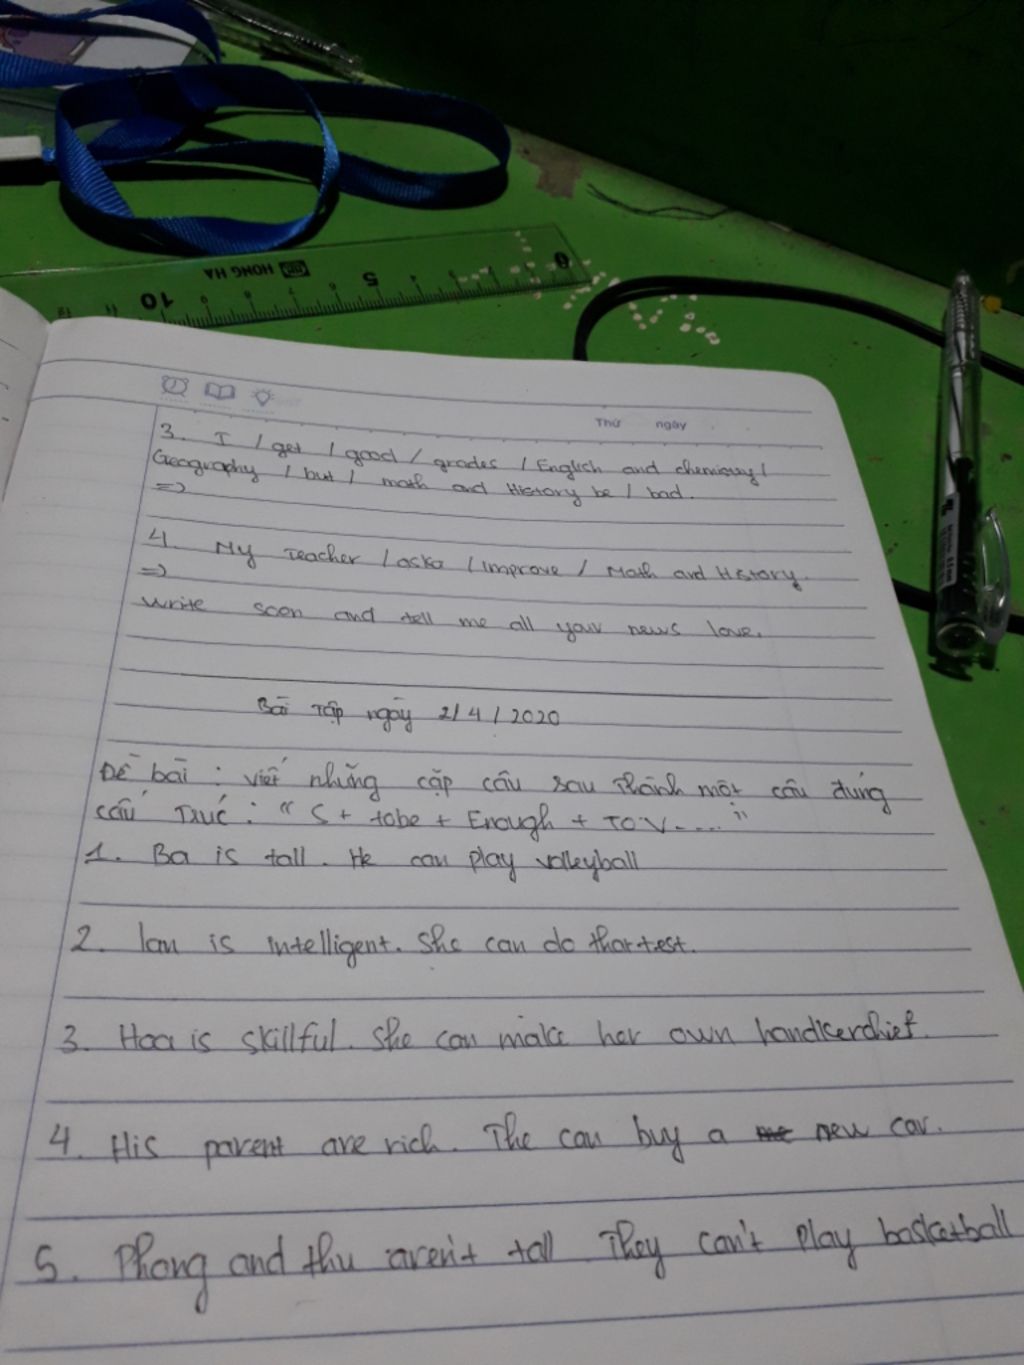 HONG HA
10 5 0
Thứ ngày
3. I / get / good / grades / English and chemistry /
Geography / but / math and History be / bad.
=>
4. My Teacher / asks / improve / Math and History.
=>
Write soon and tell me all your news love.
Bài Tập ngày 2/4/2020
Đề bài : viết những cặp câu sau Thành một câu đúng
cấu Trúc : " S + tobe + Enough + TO.V..... "
1. Ba is tall. He can play volleyball
2. lan is intelligent. She can do that test.
3. Hoa is skillful. She can make her own handkerchief.
4. His parent are rich. The can buy a new car.
5. Phong and thu aren't tall They can't play basketball